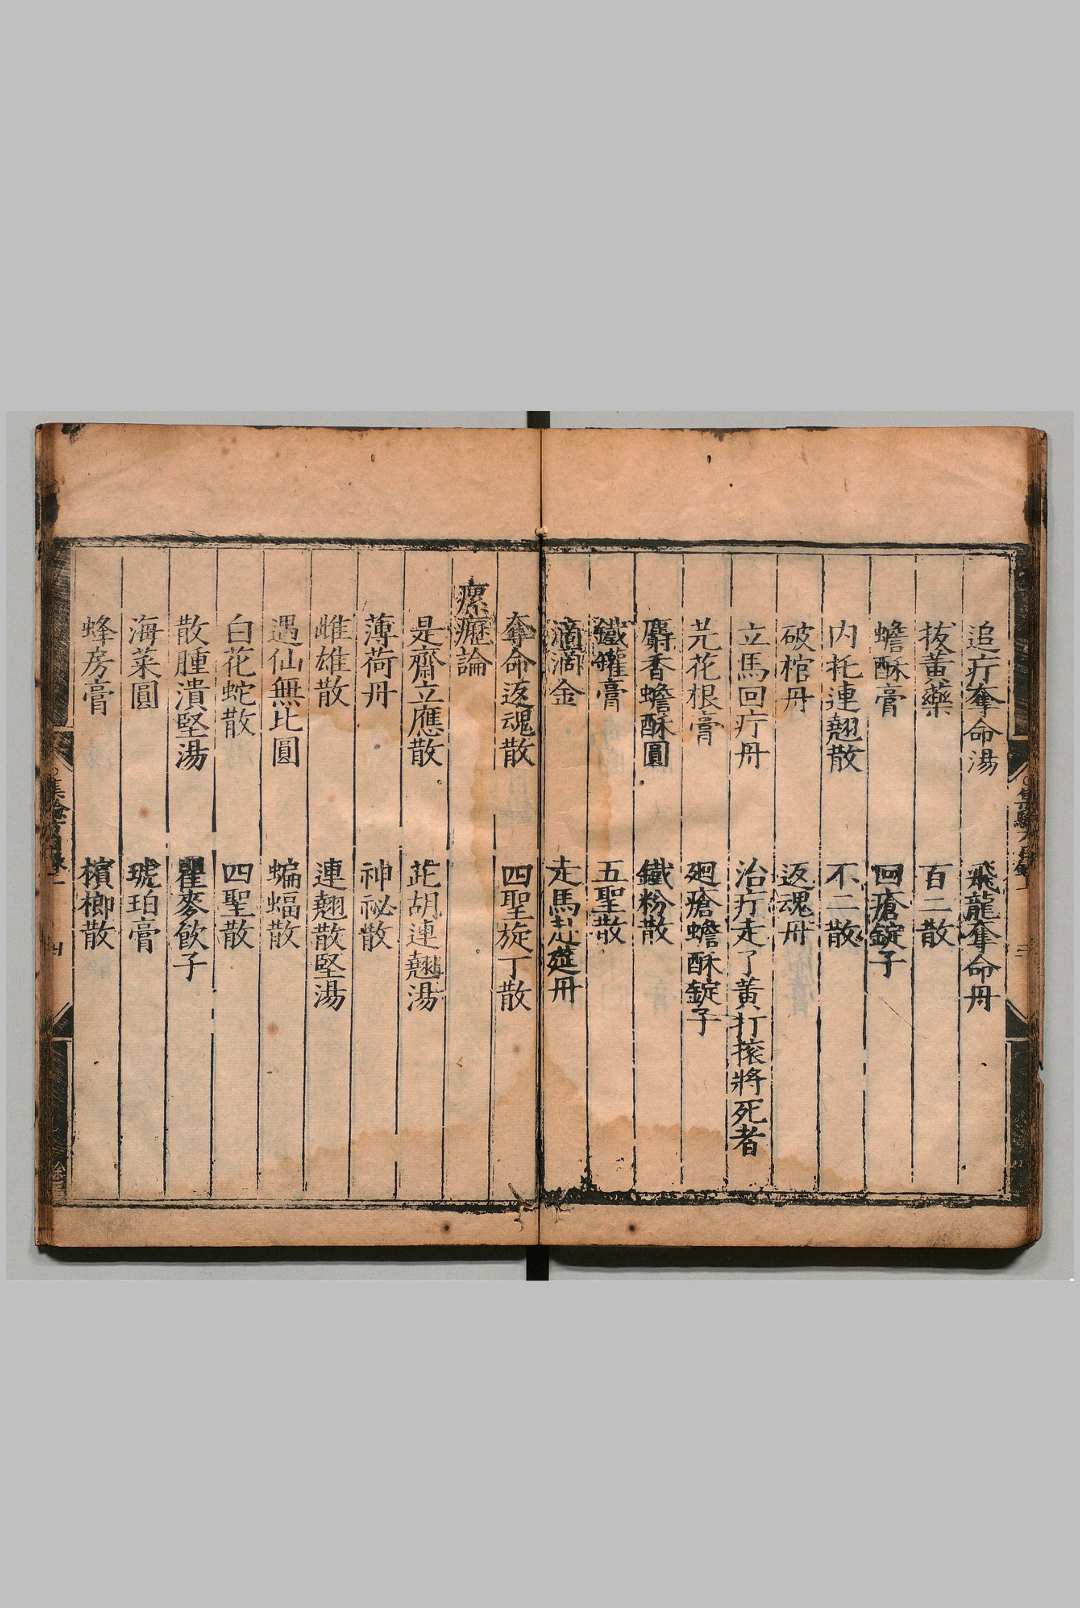 追疔奪命湯　飛龍奪命丹
拔黃藥　百二散
蟾酥膏　回瘡錠子
内托連翹散　不二散
破棺丹　返魂丹
立馬回疔丹　治疔走了黃打滾將死者
芫花根膏　廻瘡蟾酥錠子
麝香蟾酥圓　鐵粉散
鐵罐膏　五聖散
滴滴金　走馬赴筵丹
奪命返魂散　四聖旋丁散
瘰癧論
是齋立應散　茈胡連翹湯
薄荷丹　神祕散
雌雄散　連翹散堅湯
遇仙無比圓　蝙蝠散
白花蛇散　四聖散
散腫潰堅湯　瞿麥飲子
海菜圓　琥珀膏
蜂房膏　檳榔散